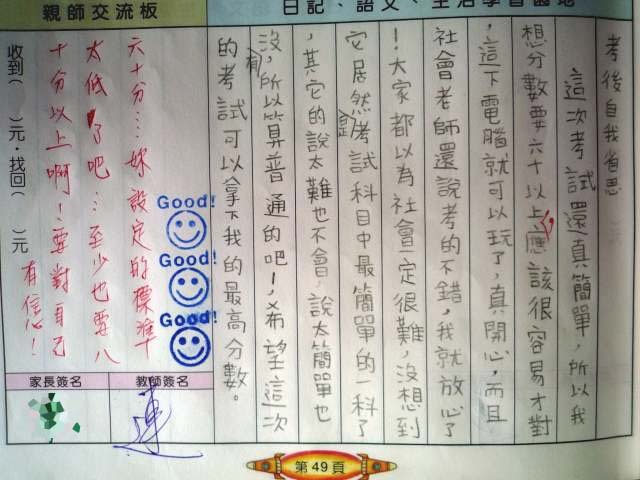 日記、語文、生活學習園地
考後自我省思
這次考試還真簡單,所以我
想分數要六十以上,應該很容易才對
,這下電腦就可以玩了,真開心,而且
社會老師還說考的不錯,我就放心了
!大家都以為社會一定很難,沒想到
它居然是考試科目中最簡單的一科了
,其它的說太難也不會,說太簡單也
沒有,所以算普通的吧!,希望這次
的考試可以拿下我的最高分數。
親師交流板
六十分…妳設定的標準
太低了吧…至少也要八
十分以上啊!要對自己
有信心!
Good!
Good!
Good!
收到( )元‧找回( )元
教師簽名
家長簽名
連
第49頁